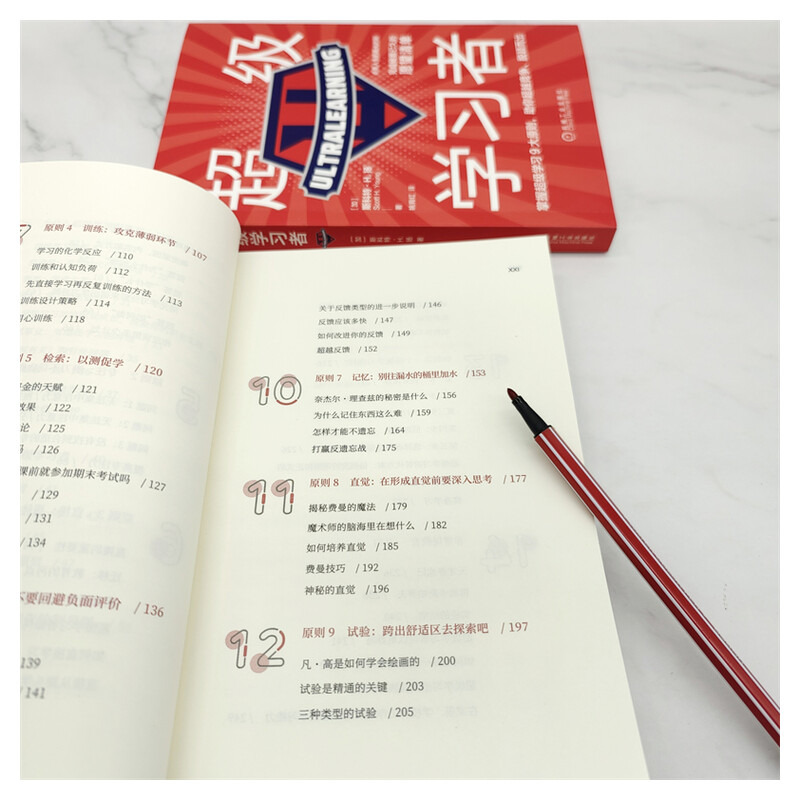 超级
学习者
ULTRALEARNING
斯科特·H. 扬
Scott H. Young
著
掌握超级学习9大原则
级学习者
原则 4 训练：攻克薄弱环节 / 107
学习的化学反应 / 110
训练和认知负荷 / 112
先直接学习再反复训练的方法 / 113
训练设计策略 / 114
心训练 / 118
5 检索：以测促学 / 120
金的天赋 / 121
效果 / 122
论 / 125
/ 126
课前就参加期末考试吗 / 127
/ 129
/ 131
/ 134
不要回避负面评价 / 136
139
/ 141
XXI
关于反馈类型的进一步说明 / 146
反馈应该多快 / 147
如何改进你的反馈 / 149
超越反馈 / 152
10 原则 7 记忆：别往漏水的桶里加水 / 153
奈杰尔·理查兹的秘密是什么 / 156
为什么记住东西这么难 / 159
怎样才能不遗忘 / 164
打赢反遗忘战 / 175
11 原则 8 直觉：在形成直觉前要深入思考 / 177
揭秘费曼的魔法 / 179
魔术师的脑海里在想什么 / 182
如何培养直觉 / 185
费曼技巧 / 192
神秘的直觉 / 196
12 原则 9 试验：跨出舒适区去探索吧 / 197
凡·高是如何学会绘画的 / 200
试验是精通的关键 / 203
三种类型的试验 / 205